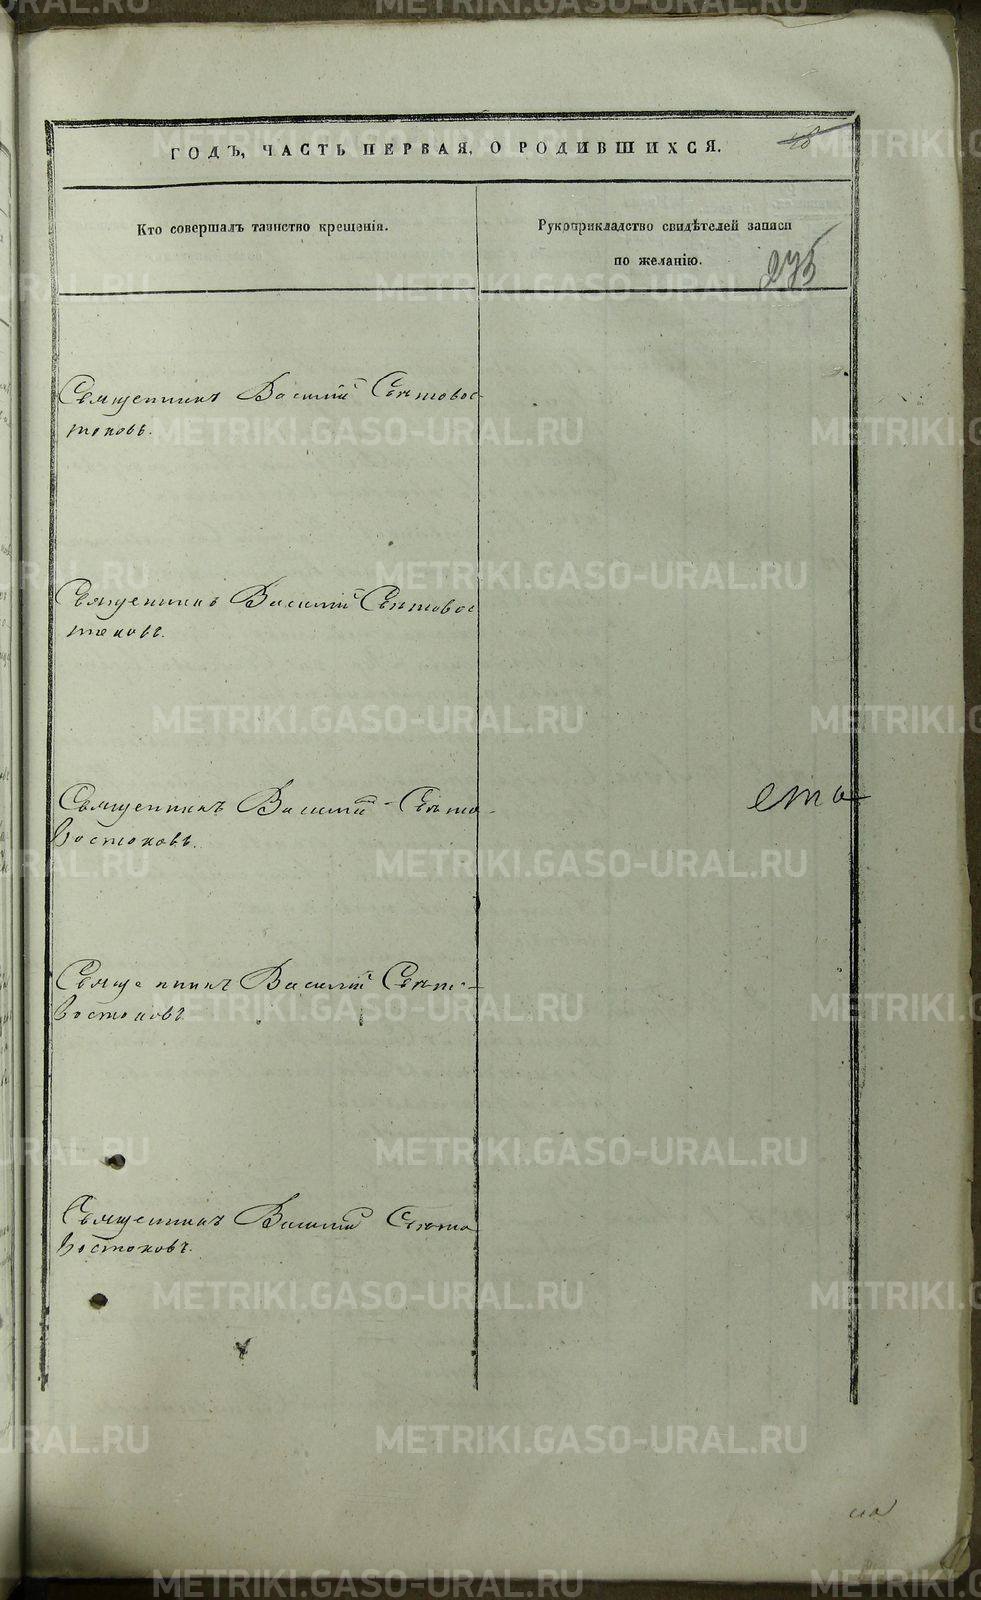 ГОДЪ, ЧАСТЬ ПЕРВАЯ, О РОДИВШИХСЯ.
Кто совершалъ таинство крещенія.
Рукоприкладство свидѣтелей записи
по желанію.
275
Священникъ Василій Свѣтовос-
токовъ.
Священникъ Василій Свѣтовос
токовъ.
Священникъ Василій Свѣто-
востоковъ.
Священникъ Василій Свѣто-
востоковъ
Священникъ Василій Свѣто
востоковъ.
METRIKI.GASO-URAL.RU